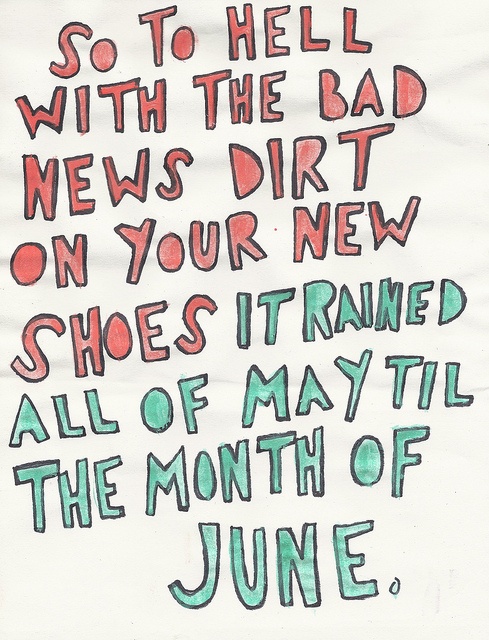 SO TO HELL
WITH THE BAD
NEWS DIRT
ON YOUR NEW
SHOES IT RAINED
ALL OF MAY TIL
THE MONTH OF
JUNE.